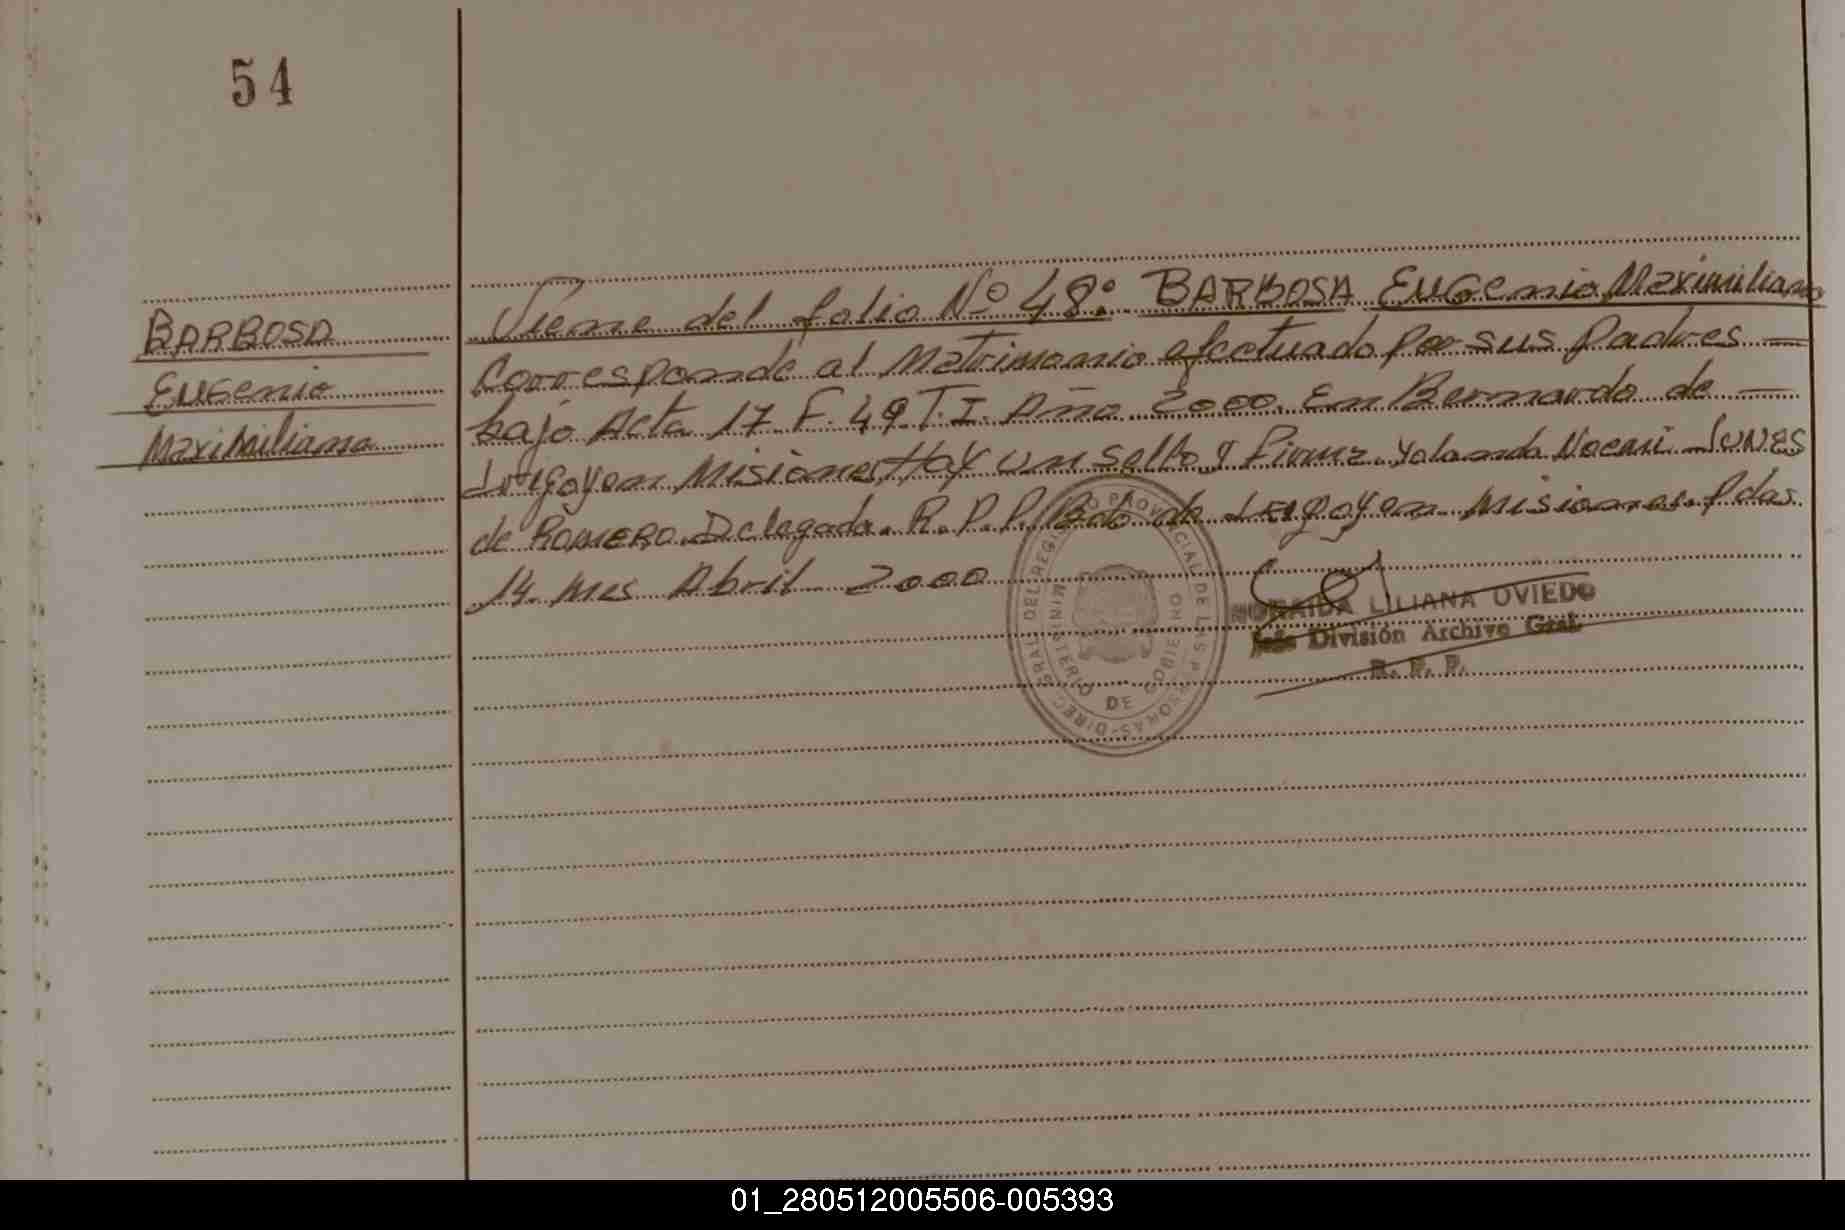 54
BARBOSA
Eugenio
Maximiliano
Viene del folio Nº 48: BARBOSA Eugenio Maximiliano
Corresponde al Matrimonio efectuado por sus Padres —
bajo Acta 17 F. 49 T. I. Año 2000. En Bernardo de —
Irigoyen Misiones Hay un sello y firma. Yolanda Noemi JUNES
de ROMERO. Delegada. R. P. P. Bdo de Irigoyen Misiones. Pdas
14 Mes Abril 2000
DIRECC RAL DEL REGI O PROVINCIAL DE LAS P RSONAS
MINISTERIO DE GOBIERNO
ZORAIDA LILIANA OVIEDO
Jefe División Archivo Gral.
R. P. P.
01_280512005506-005393